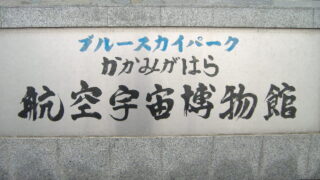 ブルースカイパーク
かかみがはら
航空宇宙博物館